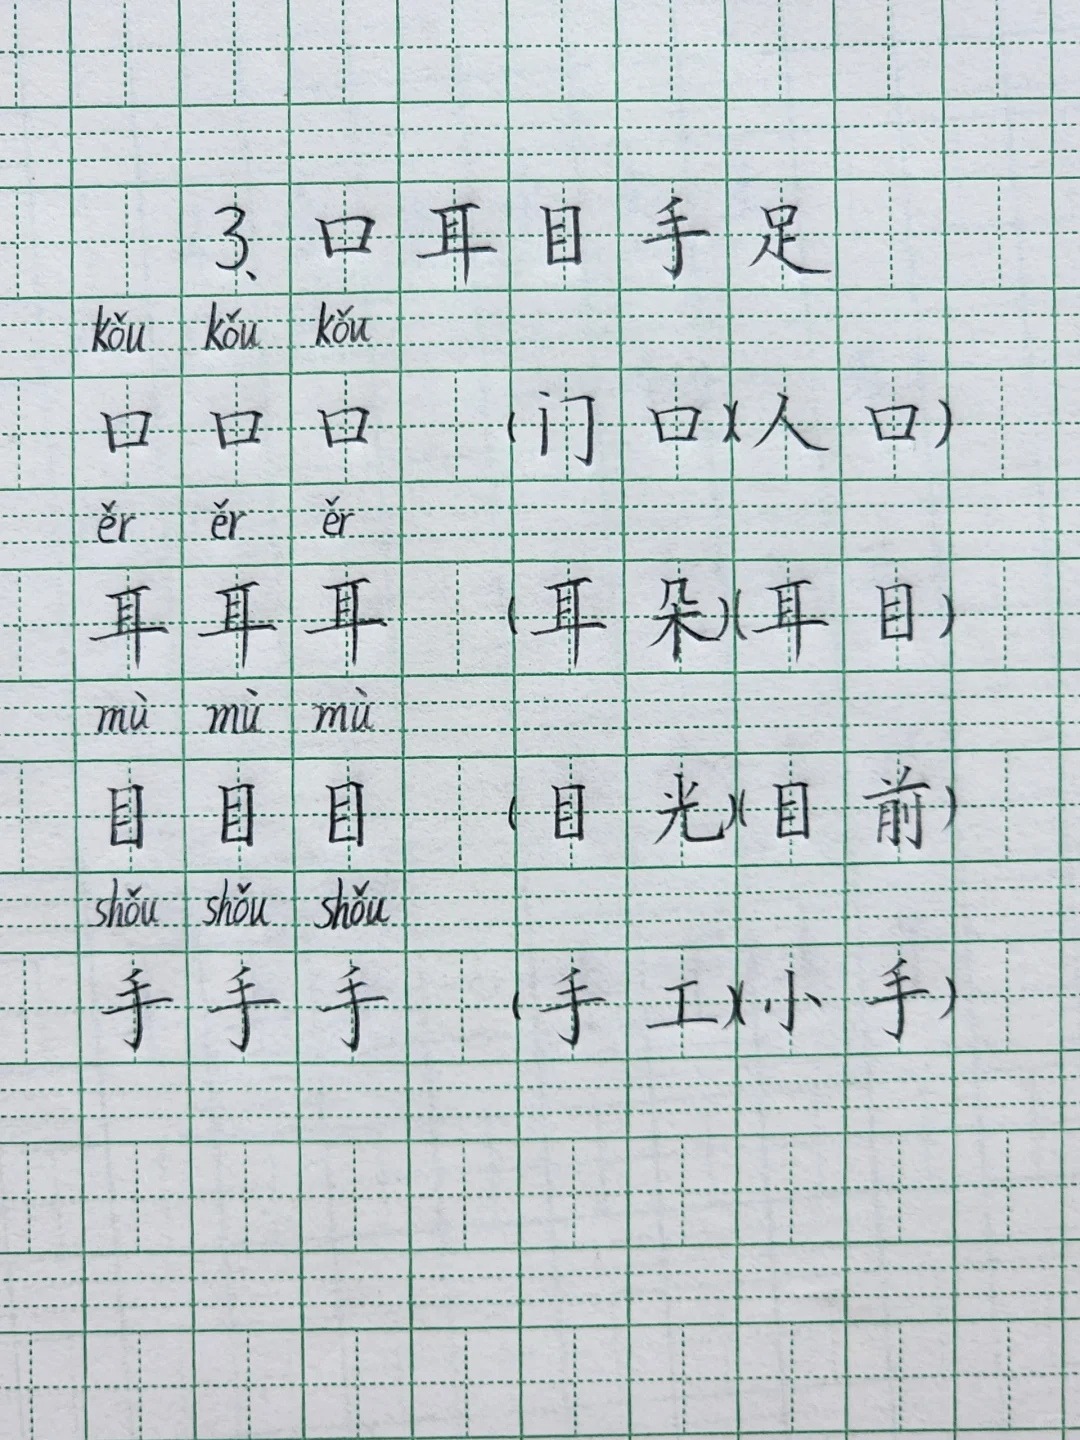 3、口耳目手足
kǒu kǒu kǒu
口 口 口 (门口)(人口)
ěr ěr ěr
耳 耳 耳 (耳朵)(耳目)
mù mù mù
目 目 目 (目光)(目前)
shǒu shǒu shǒu
手 手 手 (手工)(小手)